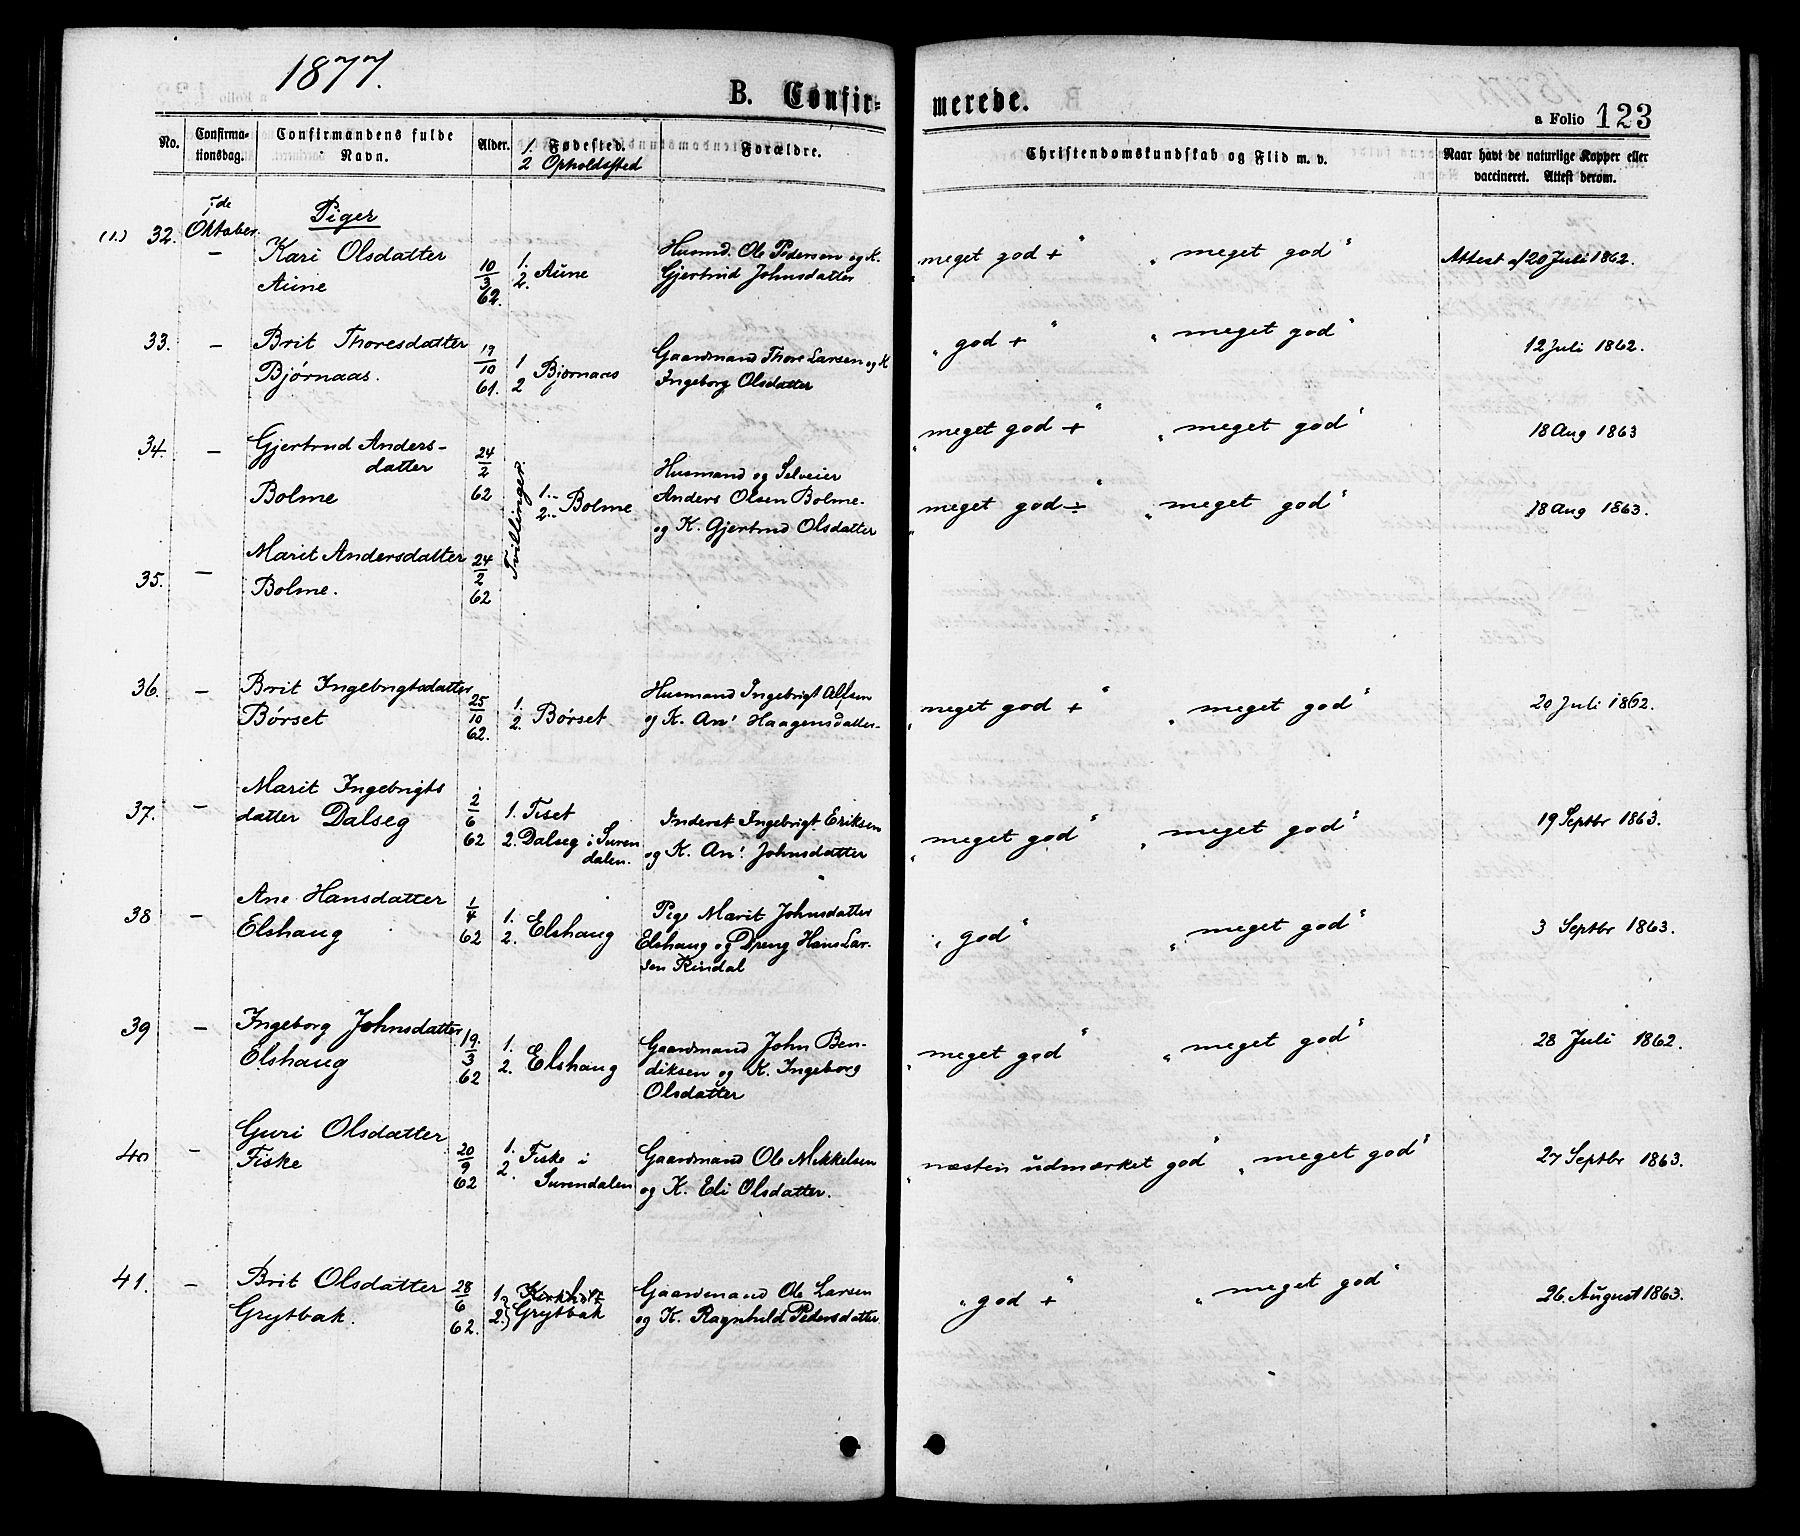 1877.
B. Confir-
merede.
a Folio 123
No.
Confirma-
tionsdag.
Confirmandens fulde
Navn.
Alder.
1. Fødested.
2 Opholdssted
Forældre.
Christendomskundskab og Flid m. v.
Naar havt de naturlige Kopper eller
vaccineret. Attest derom.
7de
Oktober.
Piger
(1.) 32. — Kari Olsdatter
Aune
10/3 62.
1.
2. Aune
Husmd. Ole Pedersen og K.
Gjertrud Johnsdatter
„meget god +“ „meget god“ Attest af 20 Juli 1862.
33. — Brit Thoresdatter
Bjørnaas.
19/10 61.
1
2 Bjørnaas
Gaardmand Thore Larsen og K
Ingeborg Olsdatter
„god +“ „meget god“ 12 Juli 1862.
34. — Gjertrud Anders-
datter
Bolme
24/2 62
Tvillinger.
1..
2.. Bolme
Husmand og Selveier
Anders Olsen Bolme
og K. Gjertrud Olsdatter
„meget god +“ „meget god“ 18 Aug 1863
35. — Marit Andersdatter
Bolme.
24/2 62
„meget god ÷“ „meget god“ 18 Aug 1863.
36. — Brit Ingebrigtsdatter
Børset
25/10 62.
1.
2. Børset
Husmand Ingebrigt Alfsen
og K. Ane Haagensdatter
„meget god +“ „meget god“ 20 Juli 1862.
37. — Marit Ingebrigts
datter Dalseg
2/6 62
1. Tiset
2. Dalseg i Suren
dalen.
Inderst Ingebrigt Eriksen
og K. Ane Johnsdatter
„meget god“ „meget god“ 19 Septbr 1863.
38 — Ane Hansdatter
Elshaug
1/4 62
1.
2. Elshaug
Pige Marit Johnsdatter
Elshaug og Dreng Hans Lar-
sen Rindal
„god“ „meget god“ 3 Septbr 1863.
39 — Ingeborg Johnsdatter
Elshaug
19/3 62
1.
2. Elshaug
Gaardmand John Ben-
diksen og K. Ingeborg
Olsdatter
„meget god“ „meget god“ 28 Juli 1862.
40 — Guri Olsdatter
Fiske
20/9 62
1.
2. Fiske i
Surendalen
Gaardmand Ole Mikkelsen
og K. Eli Olsdatter.
„næsten udmærket god“ „meget god“ 27 Septbr 1863.
41. — Brit Olsdatter
Grytbak.
28/6 62.
1.
2. Grytbak
Gaardmand Ole Larsen
og K. Ragnhild Pedersdatter.
„god +“ „meget god“ 26. August 1863.